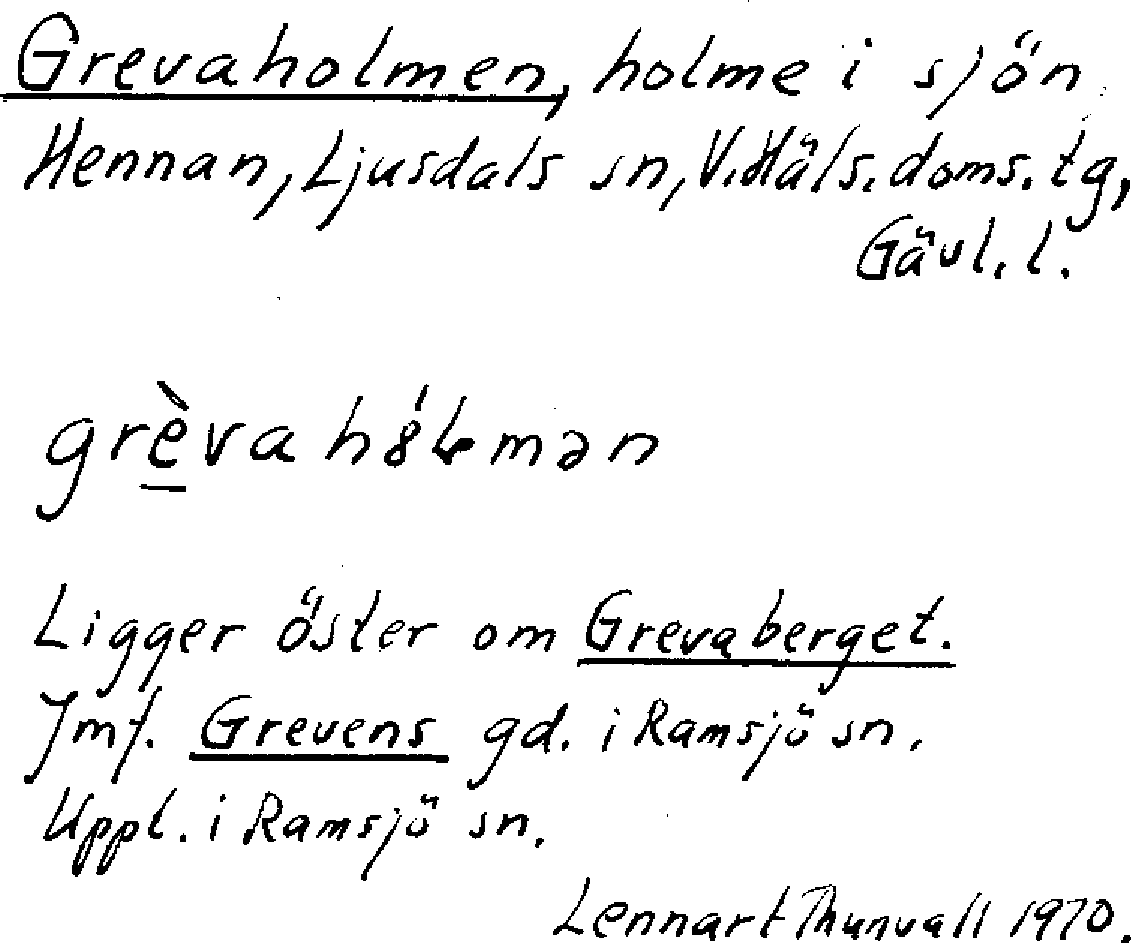 Grevaholmen, holme i sjön
Hennan, Ljusdals sn, V. Häls. doms. tg,
Gävl. l.
grèva
Ligger öster om Grevaberget.
Jmf. Grevens gd. i Ramsjö sn.
Uppt. i Ramsjö sn.
Lennart Thunvall 1970.